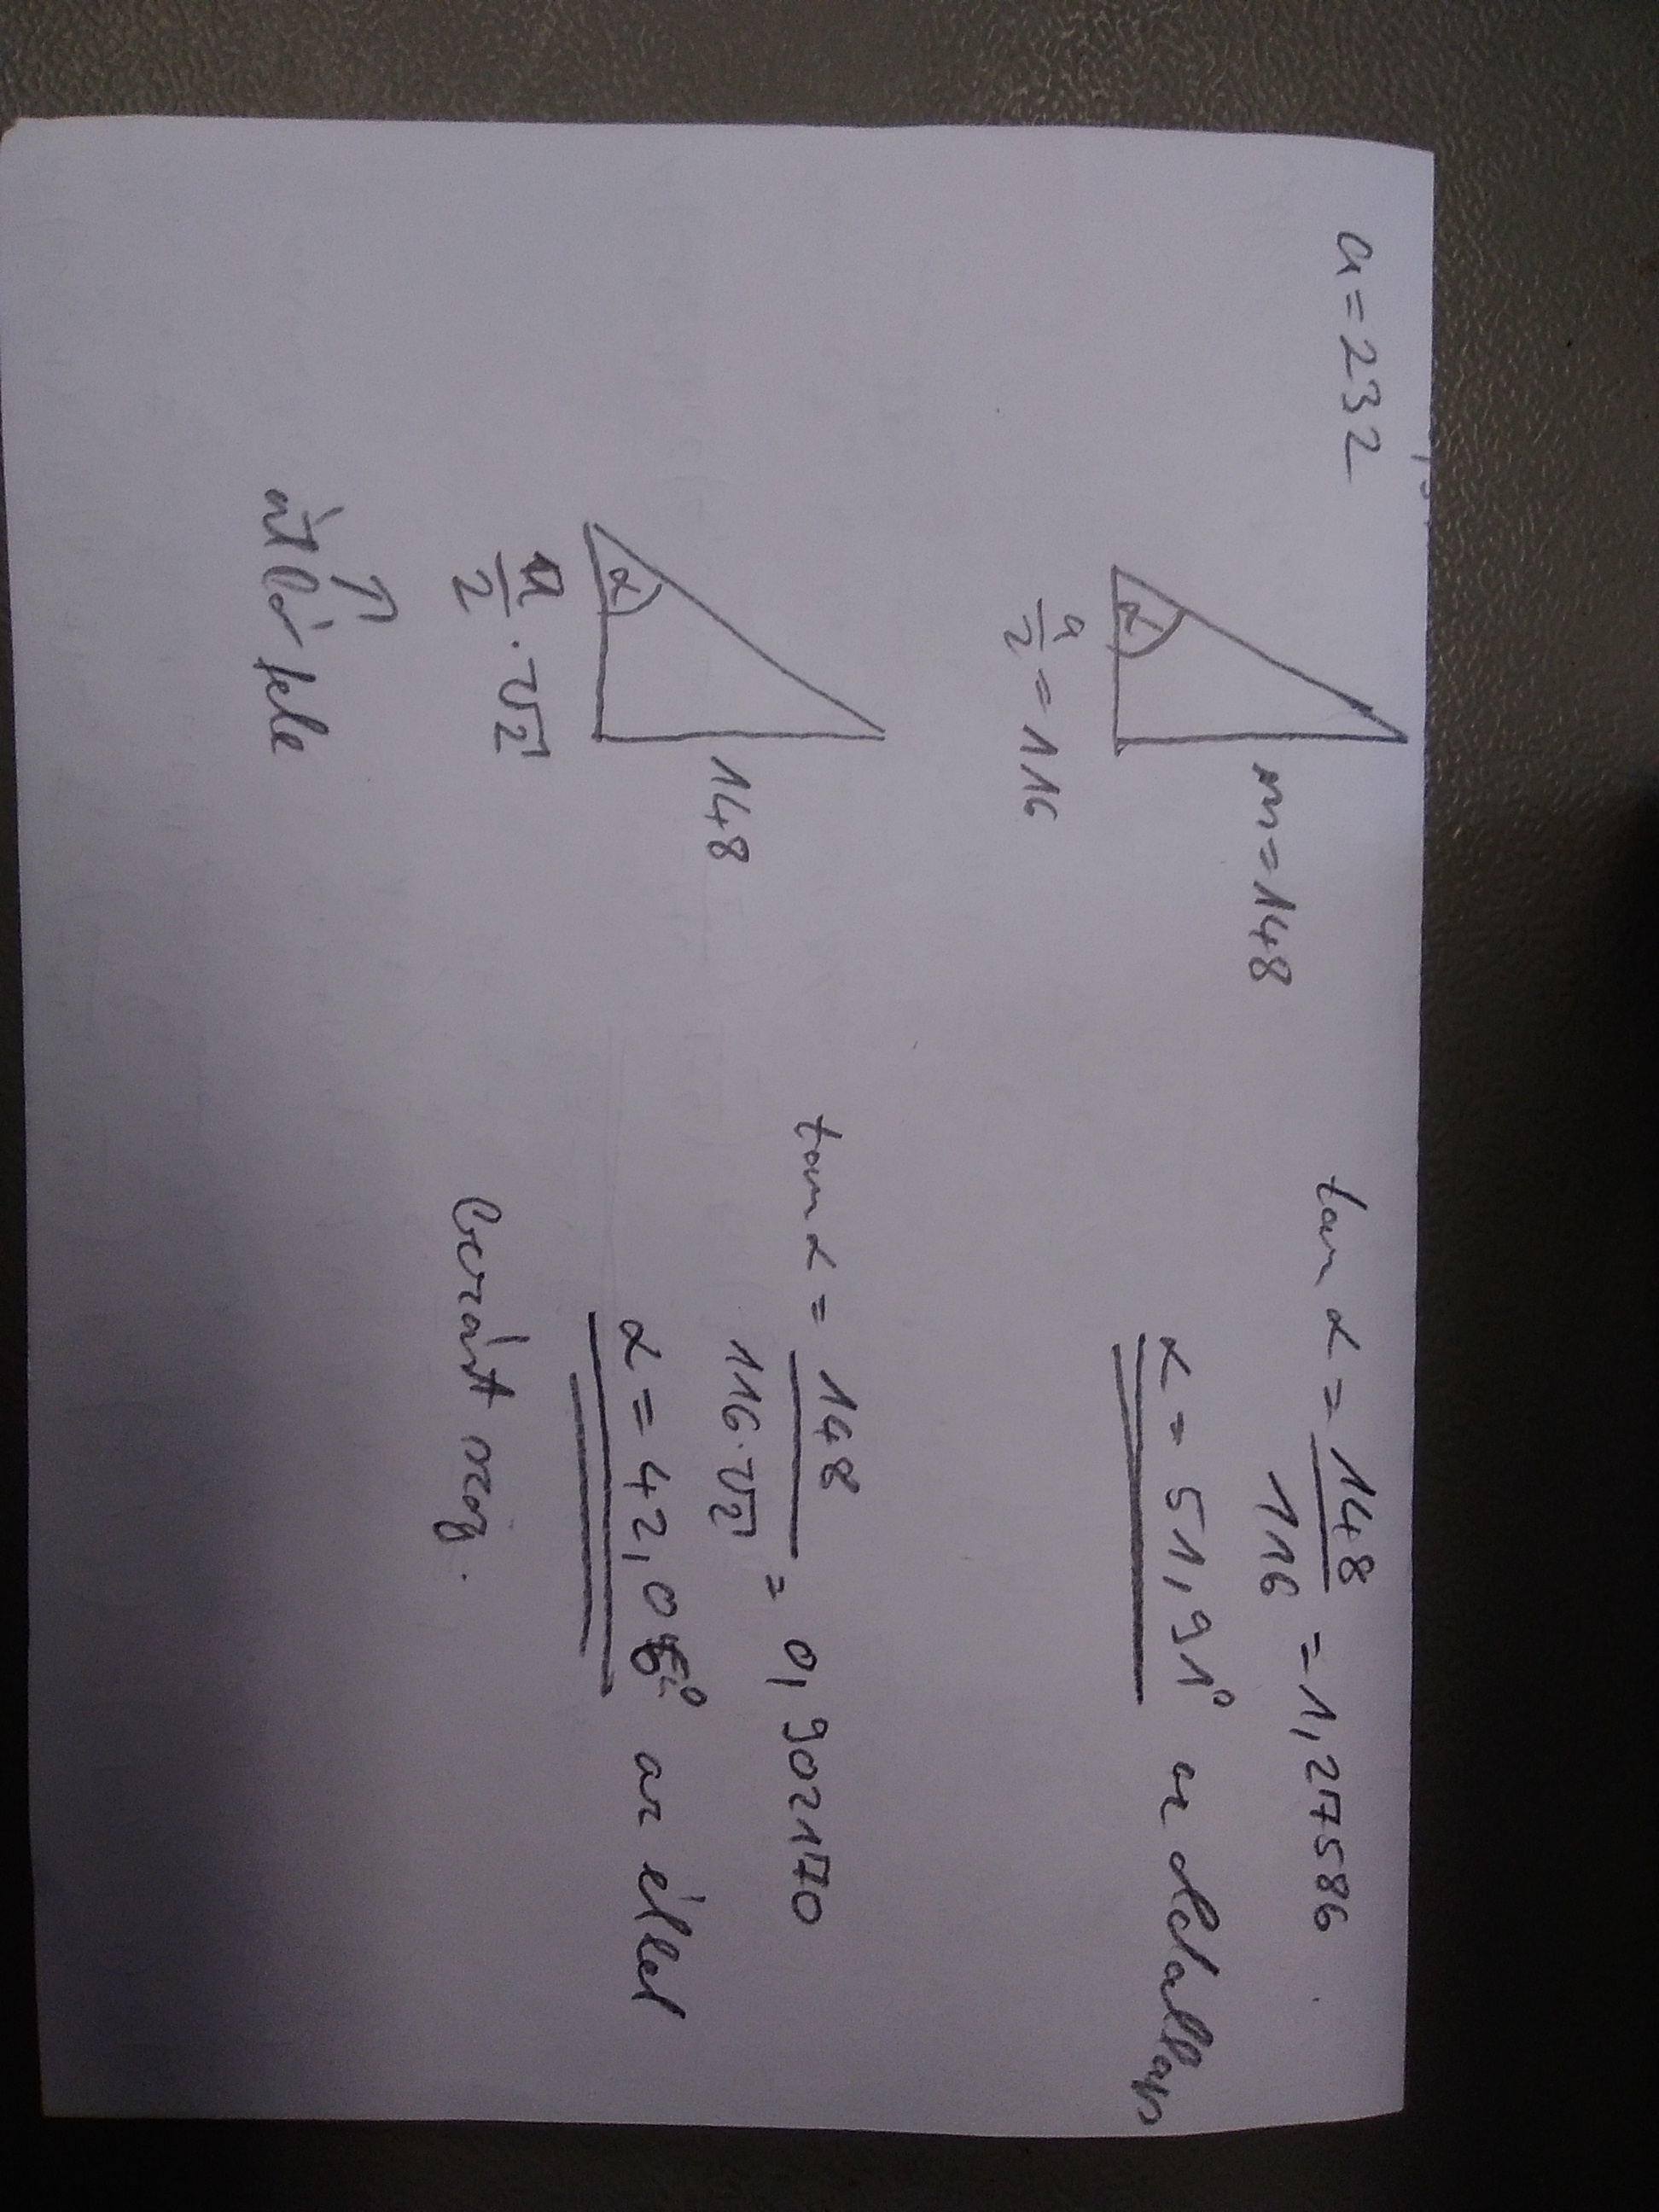 a=232
m=148
a/2 = 116
tan α = 148/116 = 1,27586
α = 51,91° az oldallap
148
a/2 · √2
átló fele
tan α = 148/116·√2 = 0,902170
α = 42,06° az éllel
bezárt szög.